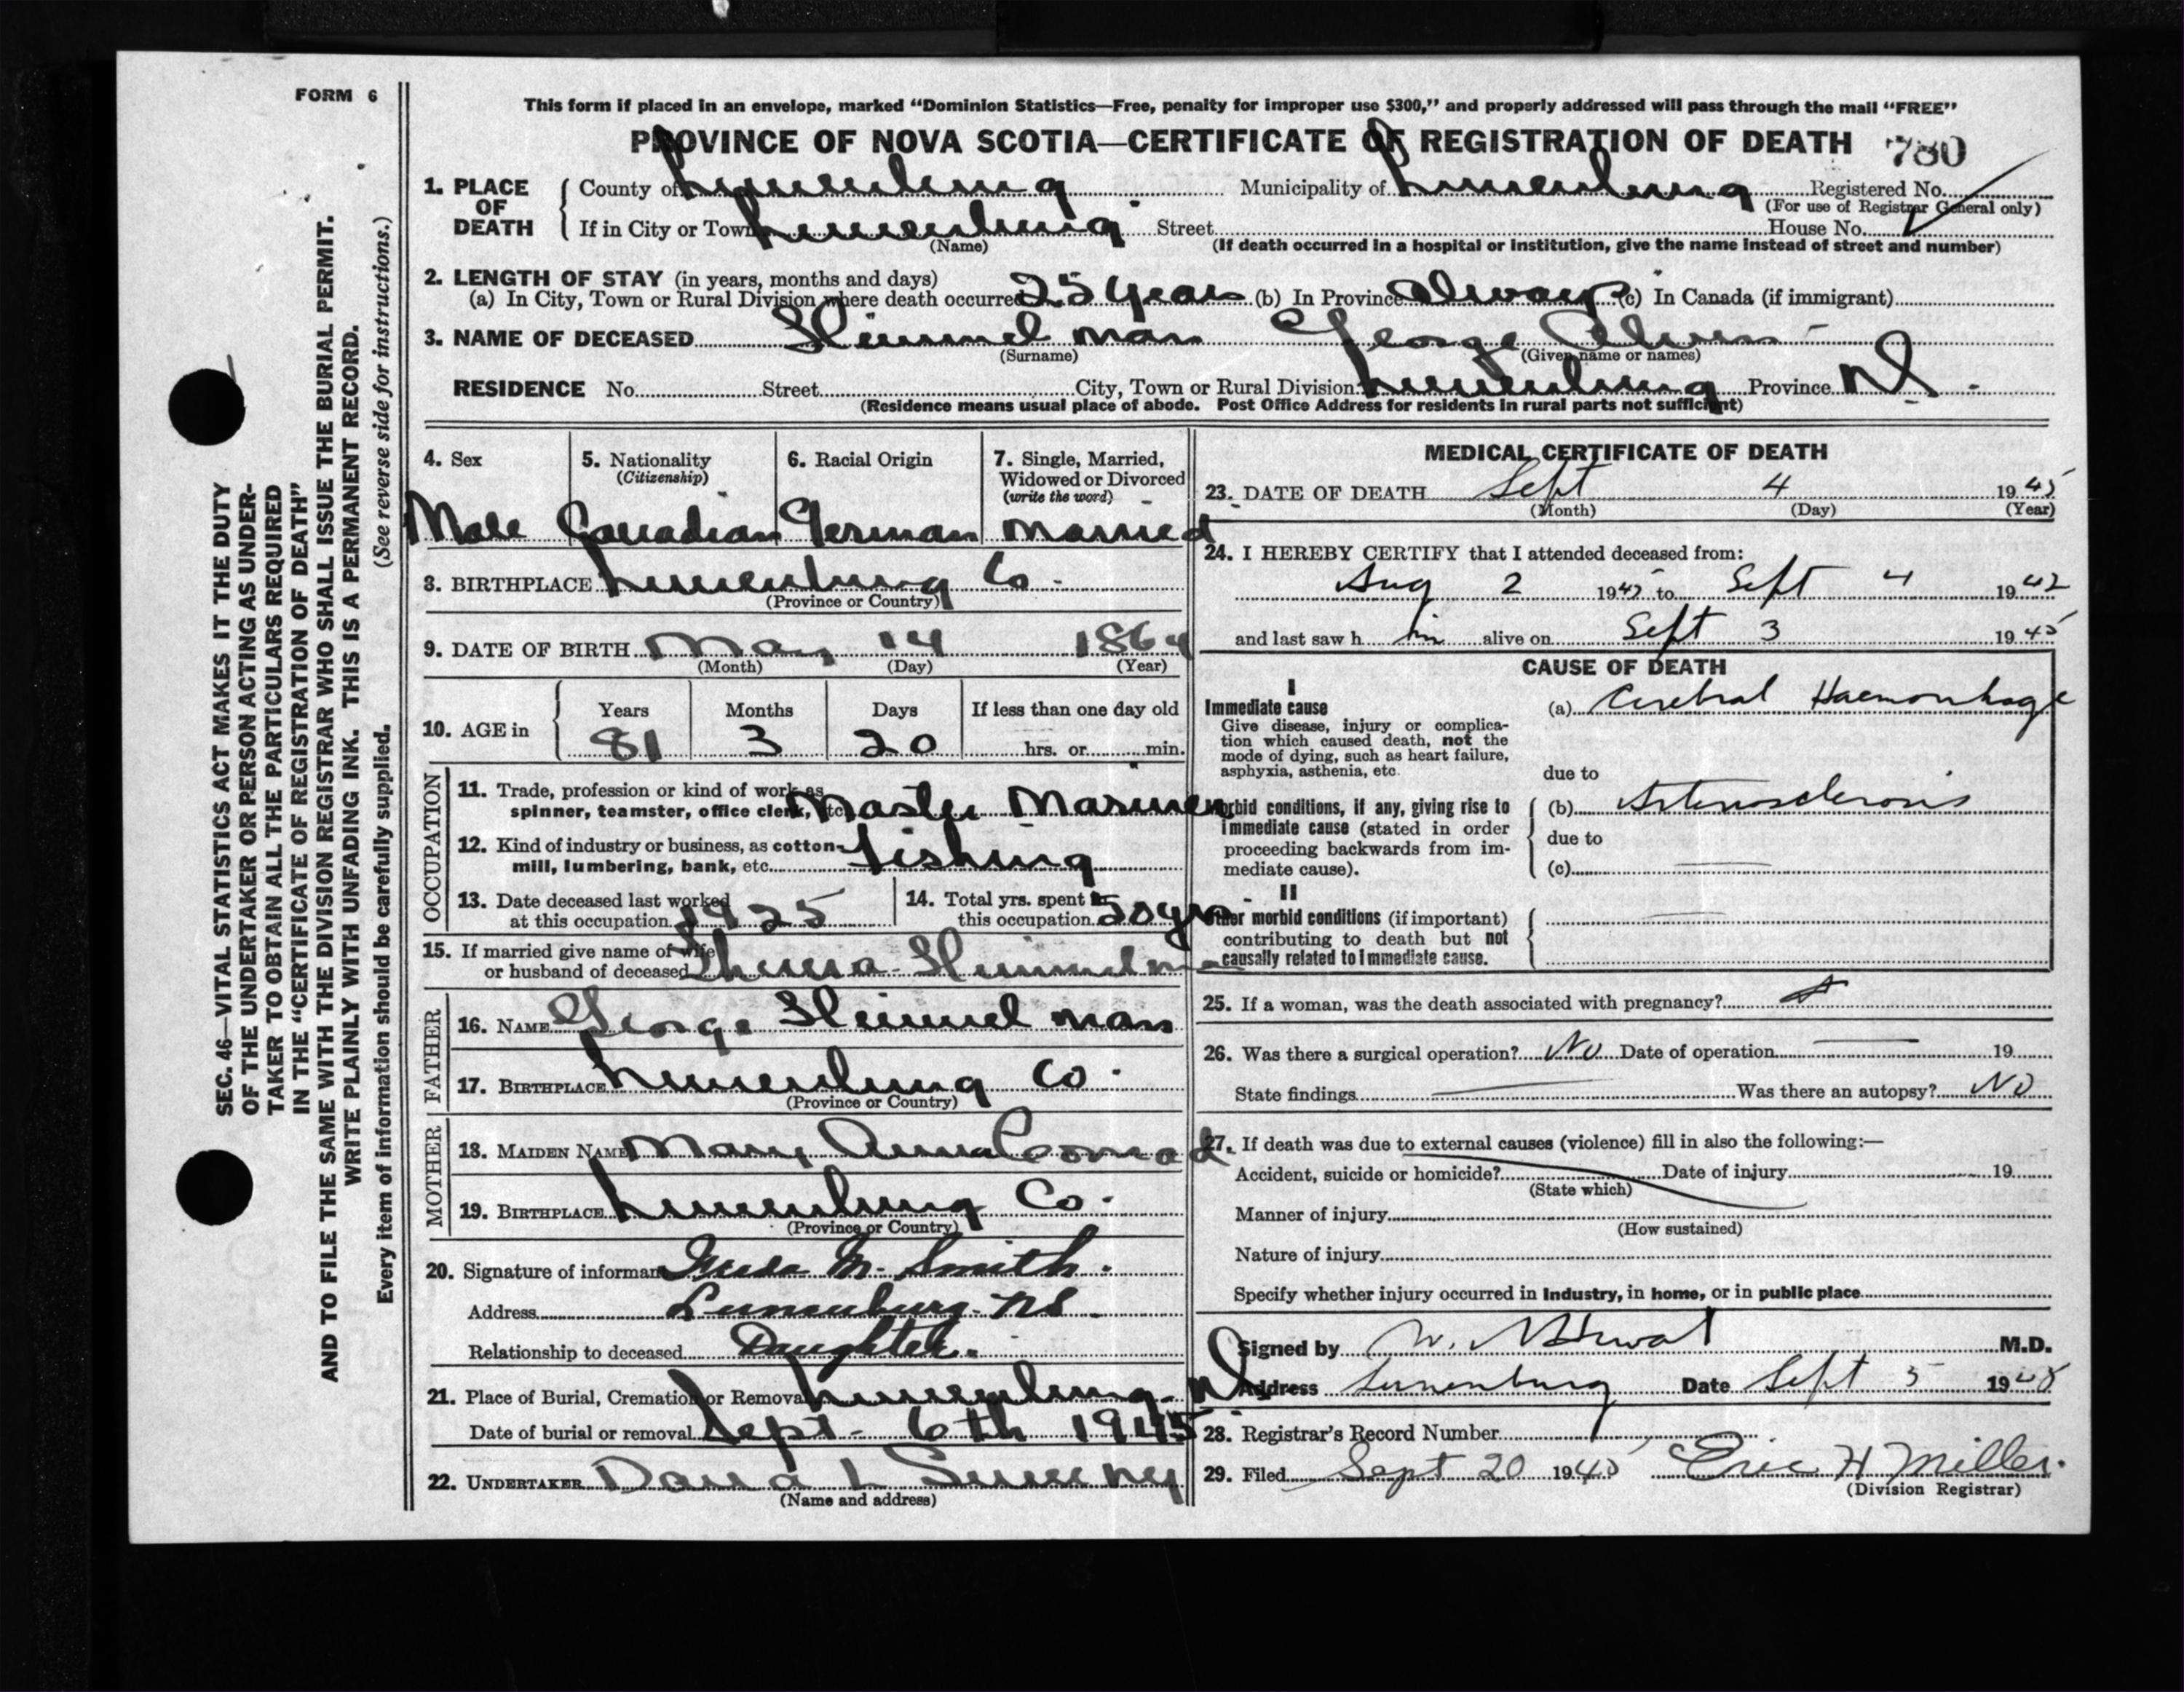 FORM 6
This form if placed in an envelope, marked “Dominion Statistics—Free, penalty for improper use $300,” and properly addressed will pass through the mail “FREE”
PROVINCE OF NOVA SCOTIA—CERTIFICATE OF REGISTRATION OF DEATH 780
1. PLACE OF DEATH County of Lunenburg Municipality of Lunenburg Registered No.
(For use of Registrar General only)
If in City or Town Lunenburg Street House No.
(Name) (If death occurred in a hospital or institution, give the name instead of street and number)
2. LENGTH OF STAY (in years, months and days)
(a) In City, Town or Rural Division where death occurred 25 years (b) In Province Always (c) In Canada (if immigrant)
3. NAME OF DECEASED Himmelman George
(Surname) (Given name or names)
RESIDENCE No. Street City, Town or Rural Division Lunenburg Province NS.
(Residence means usual place of abode. Post Office Address for residents in rural parts not sufficient)
4. Sex 5. Nationality 6. Racial Origin 7. Single, Married,
(Citizenship) Widowed or Divorced
(write the word)
Male Canadian German Married
8. BIRTHPLACE Lunenburg Co.
(Province or Country)
9. DATE OF BIRTH May 14 1864
(Month) (Day) (Year)
10. AGE in Years Months Days If less than one day old
81 3 20 hrs. or min.
OCCUPATION
11. Trade, profession or kind of work as
spinner, teamster, office clerk, etc. Master Mariner
12. Kind of industry or business, as cotton-
mill, lumbering, bank, etc. Fishing
13. Date deceased last worked 14. Total yrs. spent in
at this occupation 1925 this occupation 50 yrs
15. If married give name of wife
or husband of deceased Himmelman
FATHER
16. NAME George Himmelman
17. BIRTHPLACE Lunenburg Co.
(Province or Country)
MOTHER
18. MAIDEN NAME Mary Anna Conrad
19. BIRTHPLACE Lunenburg Co.
(Province or Country)
20. Signature of informant M. Smith.
Address Lunenburg. NS.
Relationship to deceased Daughter.
21. Place of Burial, Cremation or Removal Lunenburg. NS
Date of burial or removal Sept. 6th 1945
22. UNDERTAKER L Sweeny
(Name and address)
MEDICAL CERTIFICATE OF DEATH
23. DATE OF DEATH Sept 4 1945
(Month) (Day) (Year)
24. I HEREBY CERTIFY that I attended deceased from:
Aug 2 1945 to Sept 4 1942
and last saw him alive on Sept 3 1945
CAUSE OF DEATH
I
Immediate cause (a) Cerebral Haemorrhage
Give disease, injury or complica-
tion which caused death, not the
mode of dying, such as heart failure,
asphyxia, asthenia, etc. due to
Morbid conditions, if any, giving rise to (b) Arteriosclerosis
immediate cause (stated in order due to
proceeding backwards from im-
mediate cause). (c)
II
Other morbid conditions (if important)
contributing to death but not
causally related to immediate cause.
25. If a woman, was the death associated with pregnancy?
26. Was there a surgical operation? No Date of operation 19
State findings Was there an autopsy? No
27. If death was due to external causes (violence) fill in also the following:—
Accident, suicide or homicide? Date of injury 19
(State which)
Manner of injury
(How sustained)
Nature of injury
Specify whether injury occurred in Industry, in home, or in public place
Signed by M.D.
Address Lunenburg Date Sept 5 19
28. Registrar's Record Number
29. Filed Sept 20 1945 Eric H Miller.
(Division Registrar)
SEC. 46—VITAL STATISTICS ACT MAKES IT THE DUTY
OF THE UNDERTAKER OR PERSON ACTING AS UNDER-
TAKER TO OBTAIN ALL THE PARTICULARS REQUIRED
IN THE “CERTIFICATE OF REGISTRATION OF DEATH”
AND TO FILE THE SAME WITH THE DIVISION REGISTRAR WHO SHALL ISSUE THE BURIAL PERMIT.
WRITE PLAINLY WITH UNFADING INK. THIS IS A PERMANENT RECORD.
Every item of information should be carefully supplied. (See reverse side for instructions.)